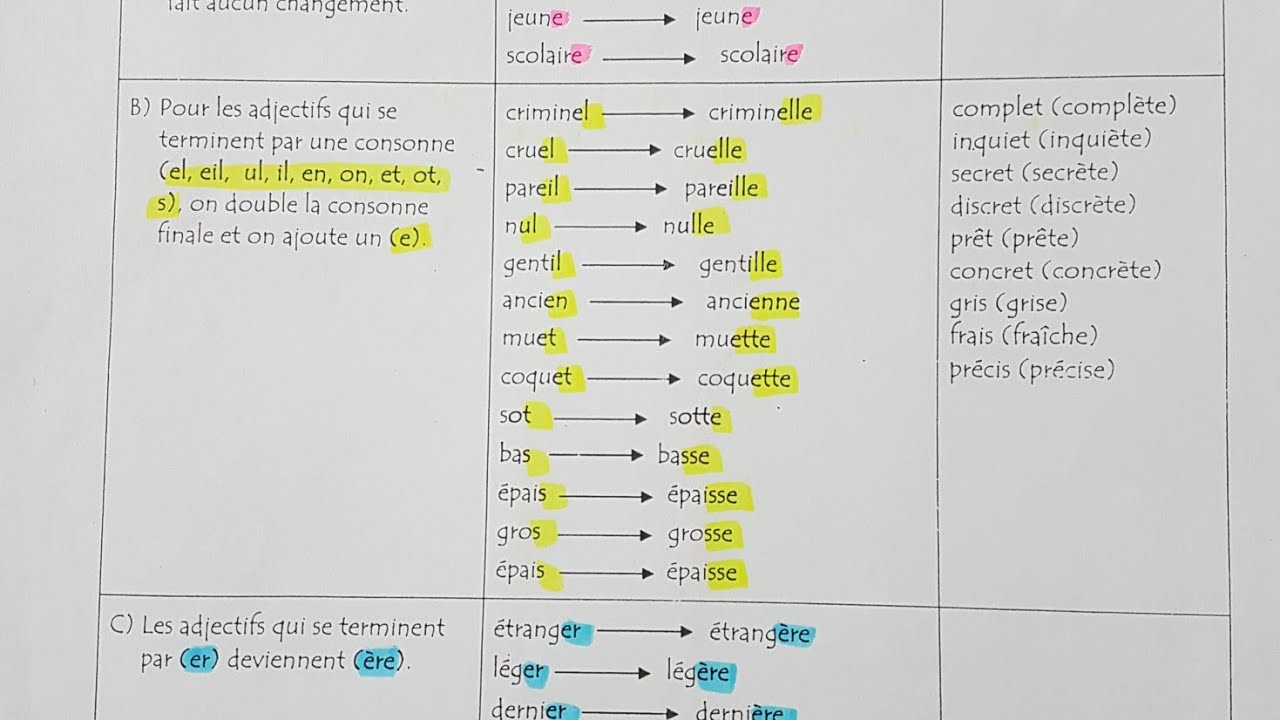 fait aucun changement.
jeune → jeune
scolaire → scolaire
B) Pour les adjectifs qui se
terminent par une consonne
(el, eil, ul, il, en, on, et, ot,
s), on double la consonne
finale et on ajoute un (e).
criminel → criminelle
cruel → cruelle
pareil → pareille
nul → nulle
gentil → gentille
ancien → ancienne
muet → muette
coquet → coquette
sot → sotte
bas → basse
épais → épaisse
gros → grosse
épais → épaisse
complet (complète)
inquiet (inquiète)
secret (secrète)
discret (discrète)
prêt (prête)
concret (concrète)
gris (grise)
frais (fraîche)
précis (précise)
C) Les adjectifs qui se terminent
par (er) deviennent (ère).
étranger → étrangère
léger → légère
dernier → dernière